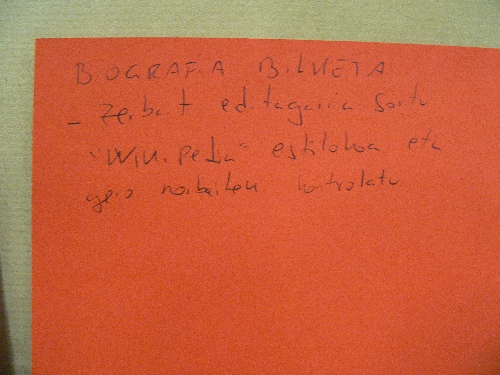 BIOGRAFIA BILKETA
- Zerbait editagarria sortu
"Wikipedia" estilokoa eta
gero norbaiten kontrolatu